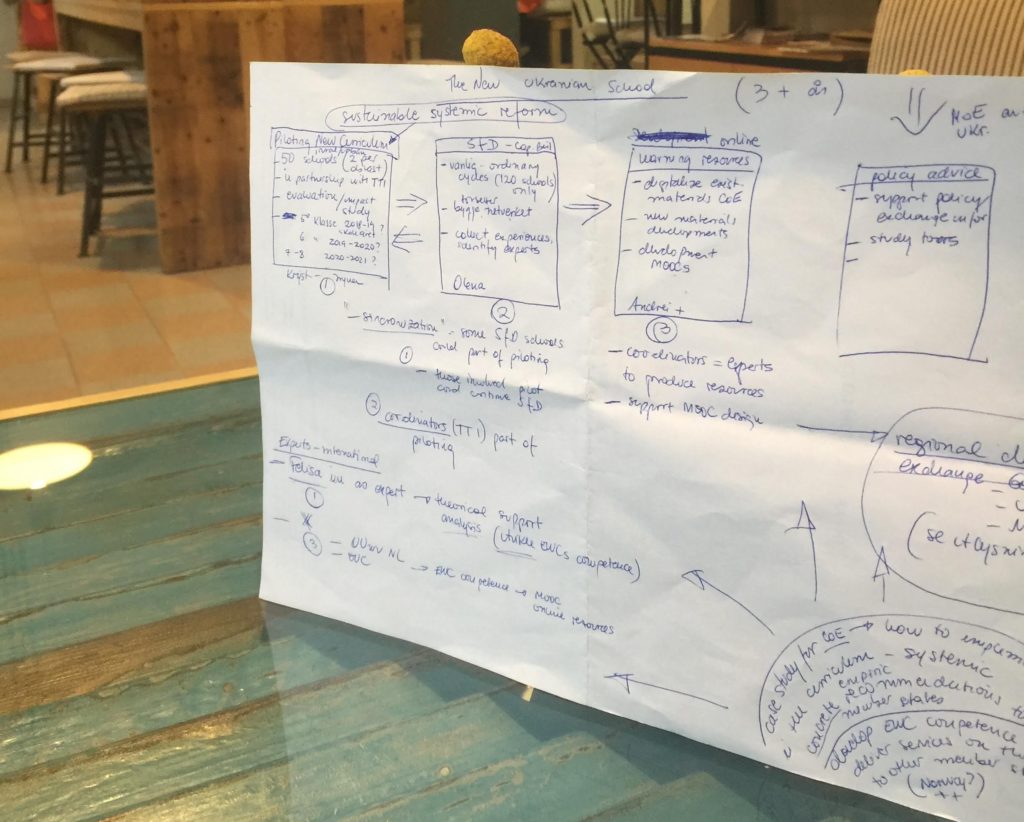 The New Ukranian School
(3 + år)
MoE an
UKr.
sustainable systemic reform
Piloting New Curriculum
- 50 schools (2 per
oblast)
- in partnership with TTI
- evaluation/impact
study
5 klasse 2018-19?
6 " 2019-2020?
7-8 2020-2021?
1
SfD - Cap. Buil
- vanlig - ordinary
cycles (120 schools
only)
bygge nettverket
- collect experiences,
identify experts
Olena
2
online
learning resources
- digitalize exist.
materials CoE
- new materials
developments
- development
MOOCs
Andrei +
3
policy advice
- support policy
exchange infor
- study tours
-
"- sincronization" = some SfD schools
could part of piloting
1
- those involved pilot
could continue SfD
2 coordinators (TTI) part of
piloting
- coordinators = experts
to produce resources
- support MOOC design
Experts - international
- Felisa inn as expert → theorical support
1
analysis (utvikle EWCs competence)
3
NL
= EWC → EWC competence → MOOC
online resources
regional di
exchange
case study for CoE → how to implem
curriculum - systemic
concrete empiric
recommendations to
member states
develop EWC competence
deliver services on th
to other member s
(Norway?)
++